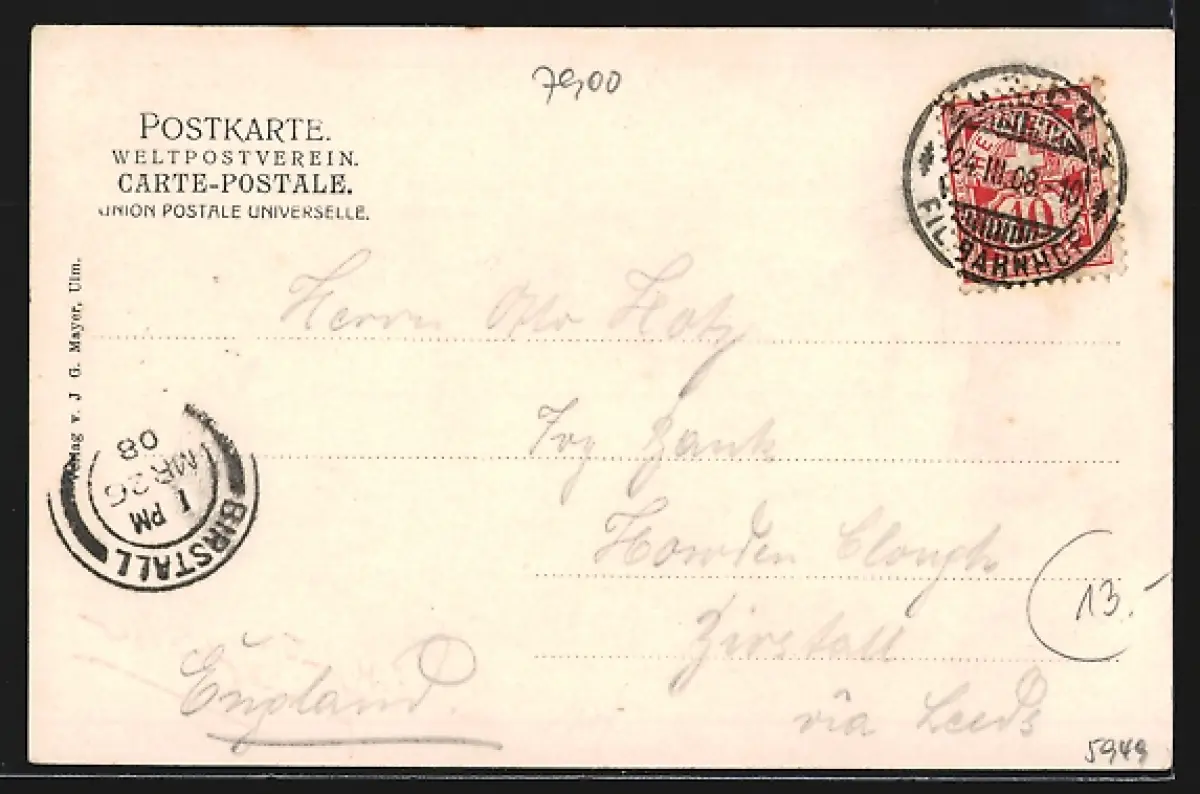 7900
POSTKARTE.
WELTPOSTVEREIN.
CARTE-POSTALE.
UNION POSTALE UNIVERSELLE.
24.III.08.-10
FIL. BAHNHOF
10
Verlag v. J. G. Mayer, Ulm.
Herrn Otto Hotz
Ivy Bank
Howden Clough
Birstall
via Leeds
England.
BIRSTALL
1 PM
MR 26
08
13.-
5949